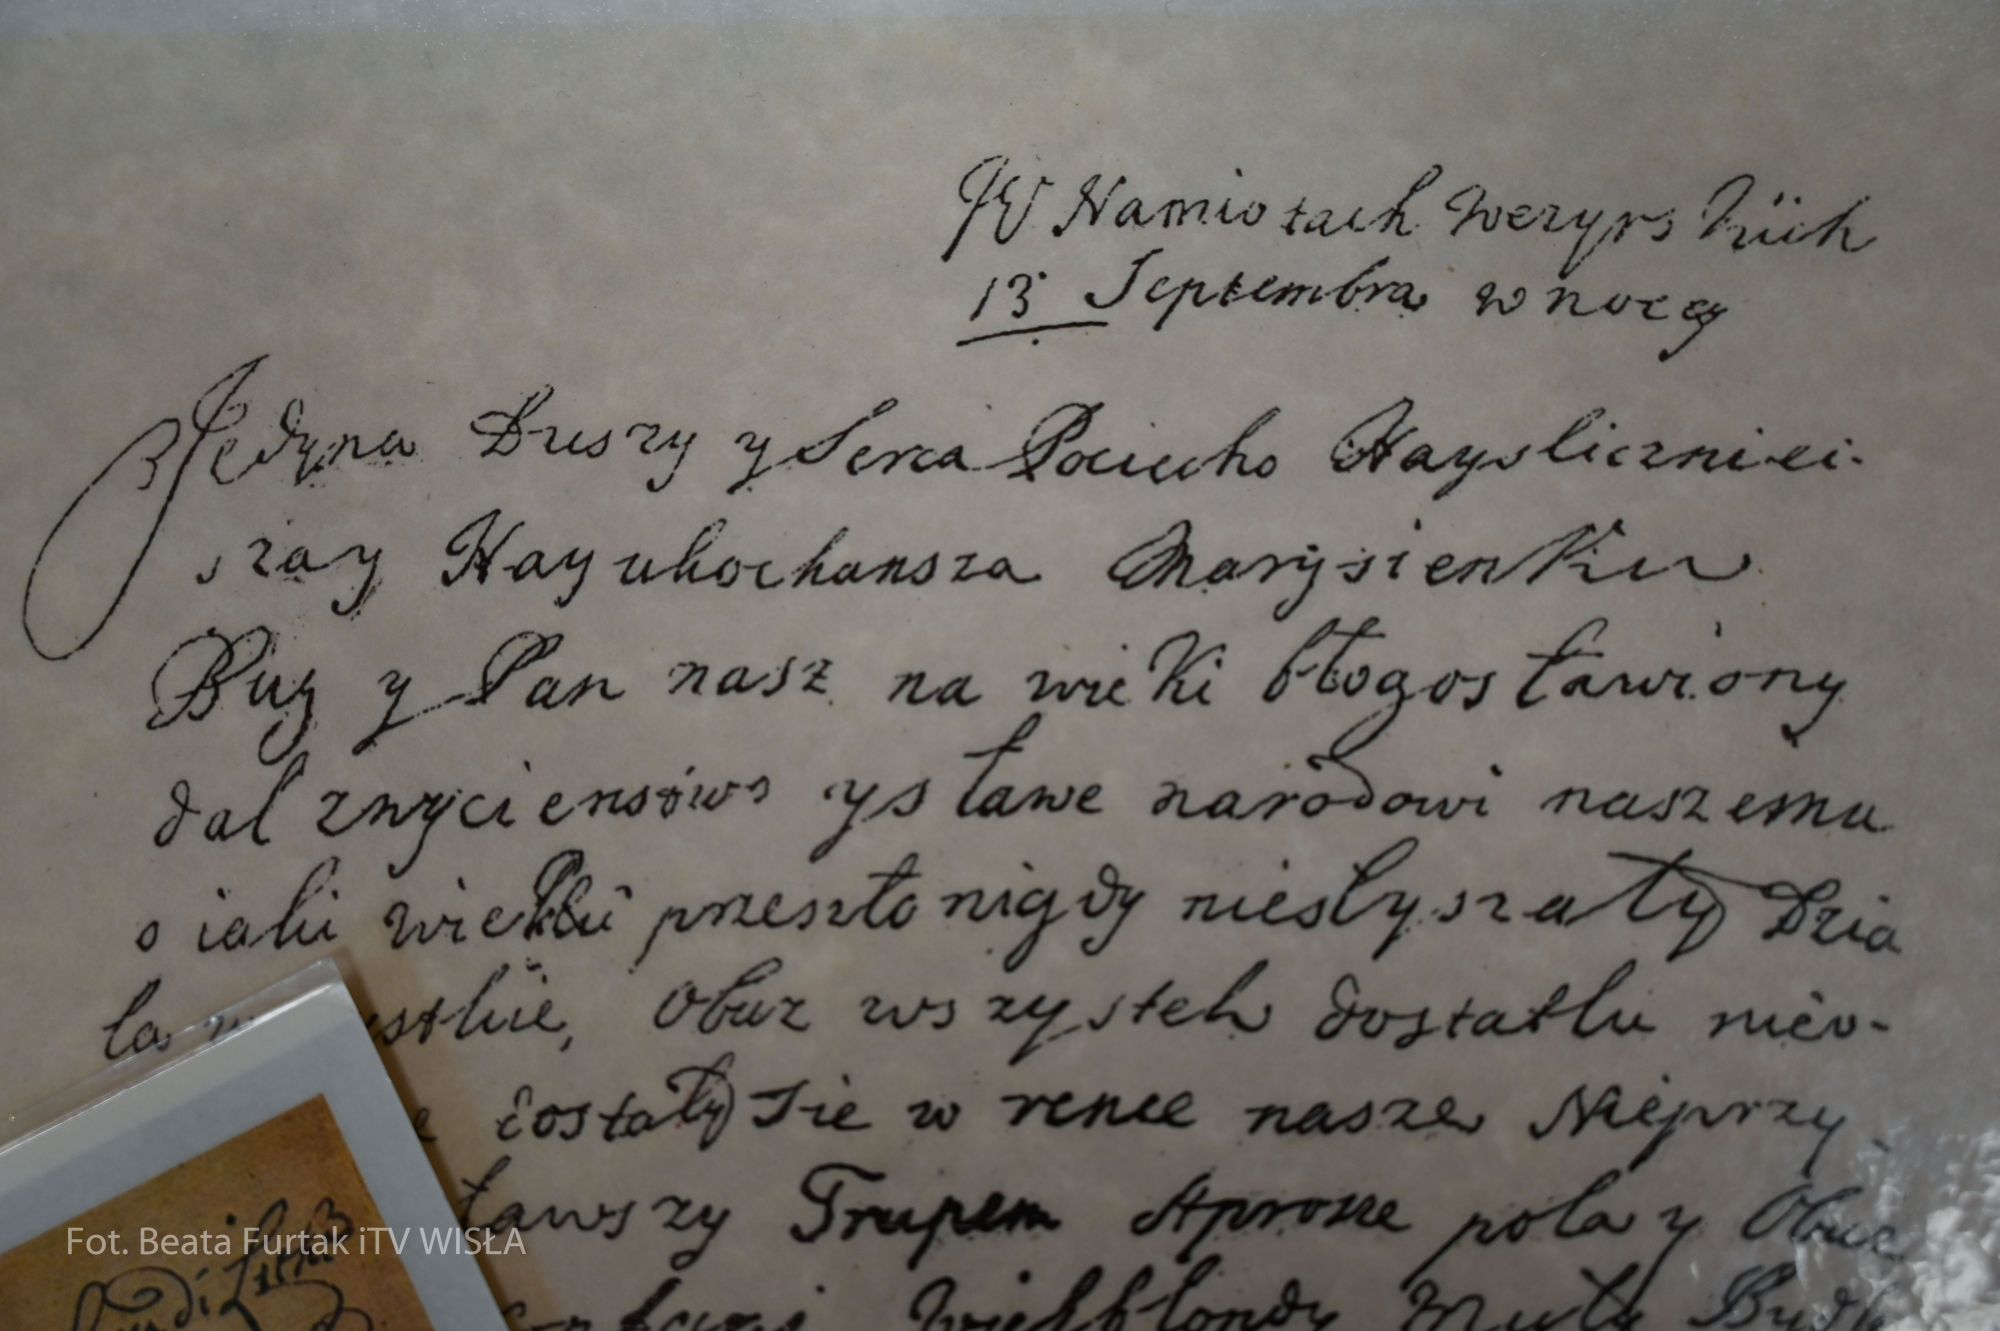 W Namiotach Wezyrskiich
13 Septembra w nocy
Jedyna Duszy y Serca Pociecho Naysliczniei-
szay Nayukochansza Marysienku
Bug y Pan nasz na wieki błogosławiony
dal zwycienstwo y sławe narodowi naszemu
o iaki wiekki przeszło nigdy niesłyszały Dzia
la wszystkie, Obuz wszysteh dostatku niev-
dostały sie w rence nasze Nieprzy-
ławszy Trupem Aprosze pola y Obuz
Wielbłondy Muły Bydł
Fot. Beata Furtak iTV WISŁA